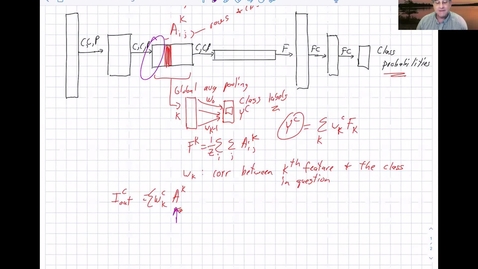 K
A i,j → rows
C,C,P C,C,P C,C,P F FC FC Class
probabilities
Global avg pooling
K w₀ Class labels
Y^C
w_K-1
F^K = 1/Z Σ_i Σ_j A_i,j^K
Y^C = Σ_K w_K^C F_K
w_K : corr between K^th feature & the class
in question
I_out^C = Σ w_K^C A^K